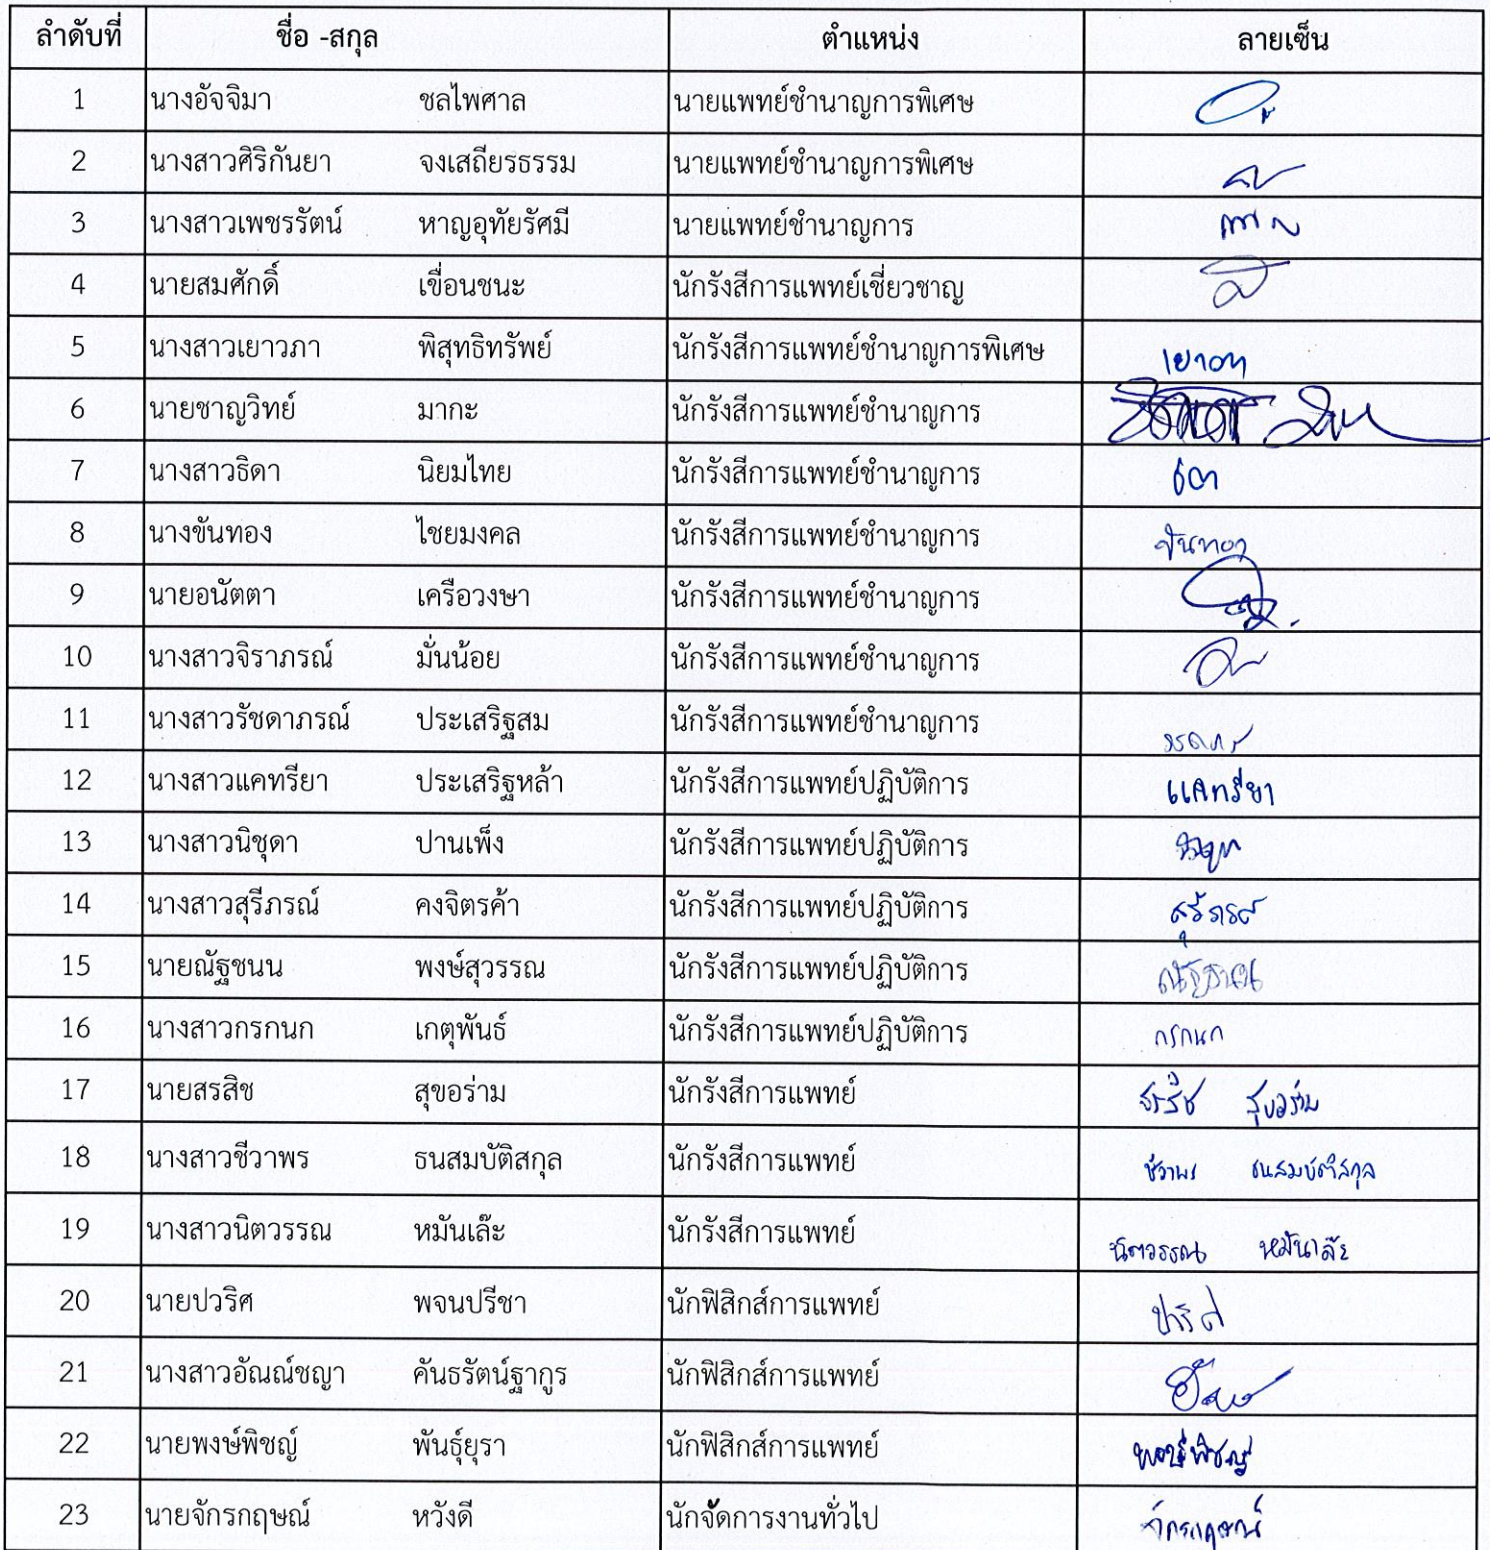 ลำดับที่ ชื่อ -สกุล ตำแหน่ง ลายเซ็น
1 นางอัจจิมา ชลไพศาล นายแพทย์ชำนาญการพิเศษ
2 นางสาวศิริกันยา จงเสถียรธรรม นายแพทย์ชำนาญการพิเศษ
3 นางสาวเพชรรัตน์ หาญอุทัยรัศมี นายแพทย์ชำนาญการ
4 นายสมศักดิ์ เขื่อนชนะ นักรังสีการแพทย์เชี่ยวชาญ
5 นางสาวเยาวภา พิสุทธิทรัพย์ นักรังสีการแพทย์ชำนาญการพิเศษ เยาวภา
6 นายชาญวิทย์ มากะ นักรังสีการแพทย์ชำนาญการ
7 นางสาวธิดา นิยมไทย นักรังสีการแพทย์ชำนาญการ
8 นางขันทอง ไชยมงคล นักรังสีการแพทย์ชำนาญการ ขันทอง
9 นายอนัตตา เครือวงษา นักรังสีการแพทย์ชำนาญการ
10 นางสาวจิราภรณ์ มั่นน้อย นักรังสีการแพทย์ชำนาญการ
11 นางสาวรัชดาภรณ์ ประเสริฐสม นักรังสีการแพทย์ชำนาญการ
12 นางสาวแคทรียา ประเสริฐหล้า นักรังสีการแพทย์ปฏิบัติการ แคทรียา
13 นางสาวนิชุดา ปานเพ็ง นักรังสีการแพทย์ปฏิบัติการ
14 นางสาวสุรีภรณ์ คงจิตรค้า นักรังสีการแพทย์ปฏิบัติการ สุรีภรณ์
15 นายณัฐชนน พงษ์สุวรรณ นักรังสีการแพทย์ปฏิบัติการ ณัฐชนน
16 นางสาวกรกนก เกตุพันธ์ นักรังสีการแพทย์ปฏิบัติการ กรกนก
17 นายสรสิช สุขอร่าม นักรังสีการแพทย์ สรสิช สุขอร่าม
18 นางสาวชีวาพร ธนสมบัติสกุล นักรังสีการแพทย์ ชีวาพร ธนสมบัติสกุล
19 นางสาวนิตวรรณ หมันเล๊ะ นักรังสีการแพทย์ นิตวรรณ หมันเล๊ะ
20 นายปวริศ พจนปรีชา นักฟิสิกส์การแพทย์ ปวริศ
21 นางสาวอัณณ์ชญา คันธรัตน์ฐากูร นักฟิสิกส์การแพทย์
22 นายพงษ์พิชญ์ พันธุ์ยุรา นักฟิสิกส์การแพทย์ พงษ์พิชญ์
23 นายจักรกฤษณ์ หวังดี นักจัดการงานทั่วไป จักรกฤษณ์